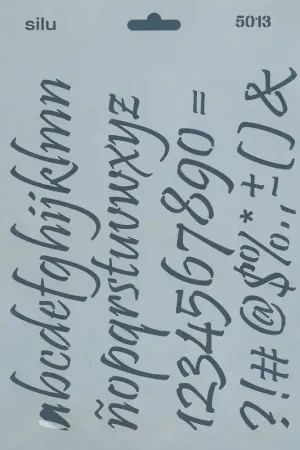 silu
5013
abcdefghijklmn
ñopqrstuvwxyz
1234567890=
?!#@$%*.,±()&